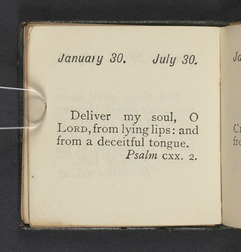 January 30. July 30.
Deliver my soul, O
LORD, from lying lips: and
from a deceitful tongue.
Psalm cxx. 2.